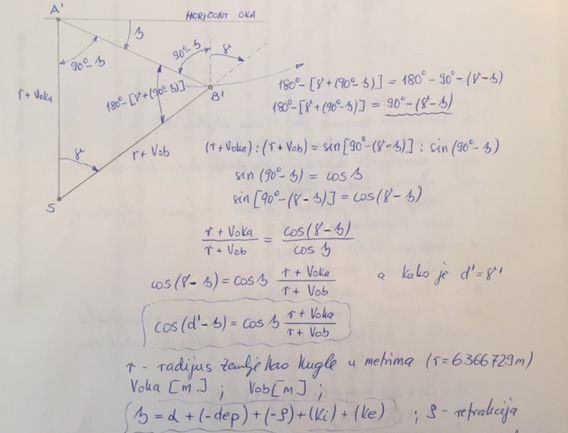 A'
HORIZONT OKA
β
90°-β
90°-β
γ
r + Voka
180°-[γ+(90°-β)]
B'
γ
r + Vob
S
180°-[γ+(90°-β)] = 180°-90°-(γ-β)
180°-[γ+(90°-β)] = 90°-(γ-β)
(r+Voka):(r+Vob) = sin[90°-(γ-β)] : sin(90°-β)
sin(90°-β) = cosβ
sin[90°-(γ-β)] = cos(γ-β)
r + Voka / r + Vob = cos(γ-β) / cosβ
cos(γ-β) = cosβ r + Voka / r + Vob a kako je d' = γ'
cos(d'-β) = cosβ r + Voka / r + Vob
r - radijus Zemlje kao kugle u metrima (r=6366729m)
Voka [m] ; Vob [m] ;
β = α + (-dep) + (-ρ) + (Ki) + (Ke) ; ρ - refrakcija